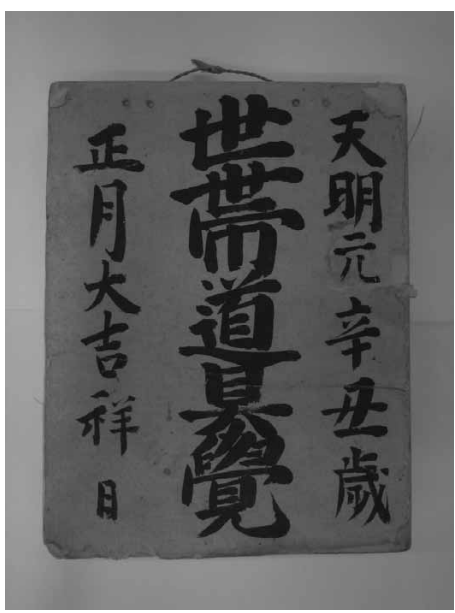 天明元辛丑歳
世帯道具覺
正月大吉祥日